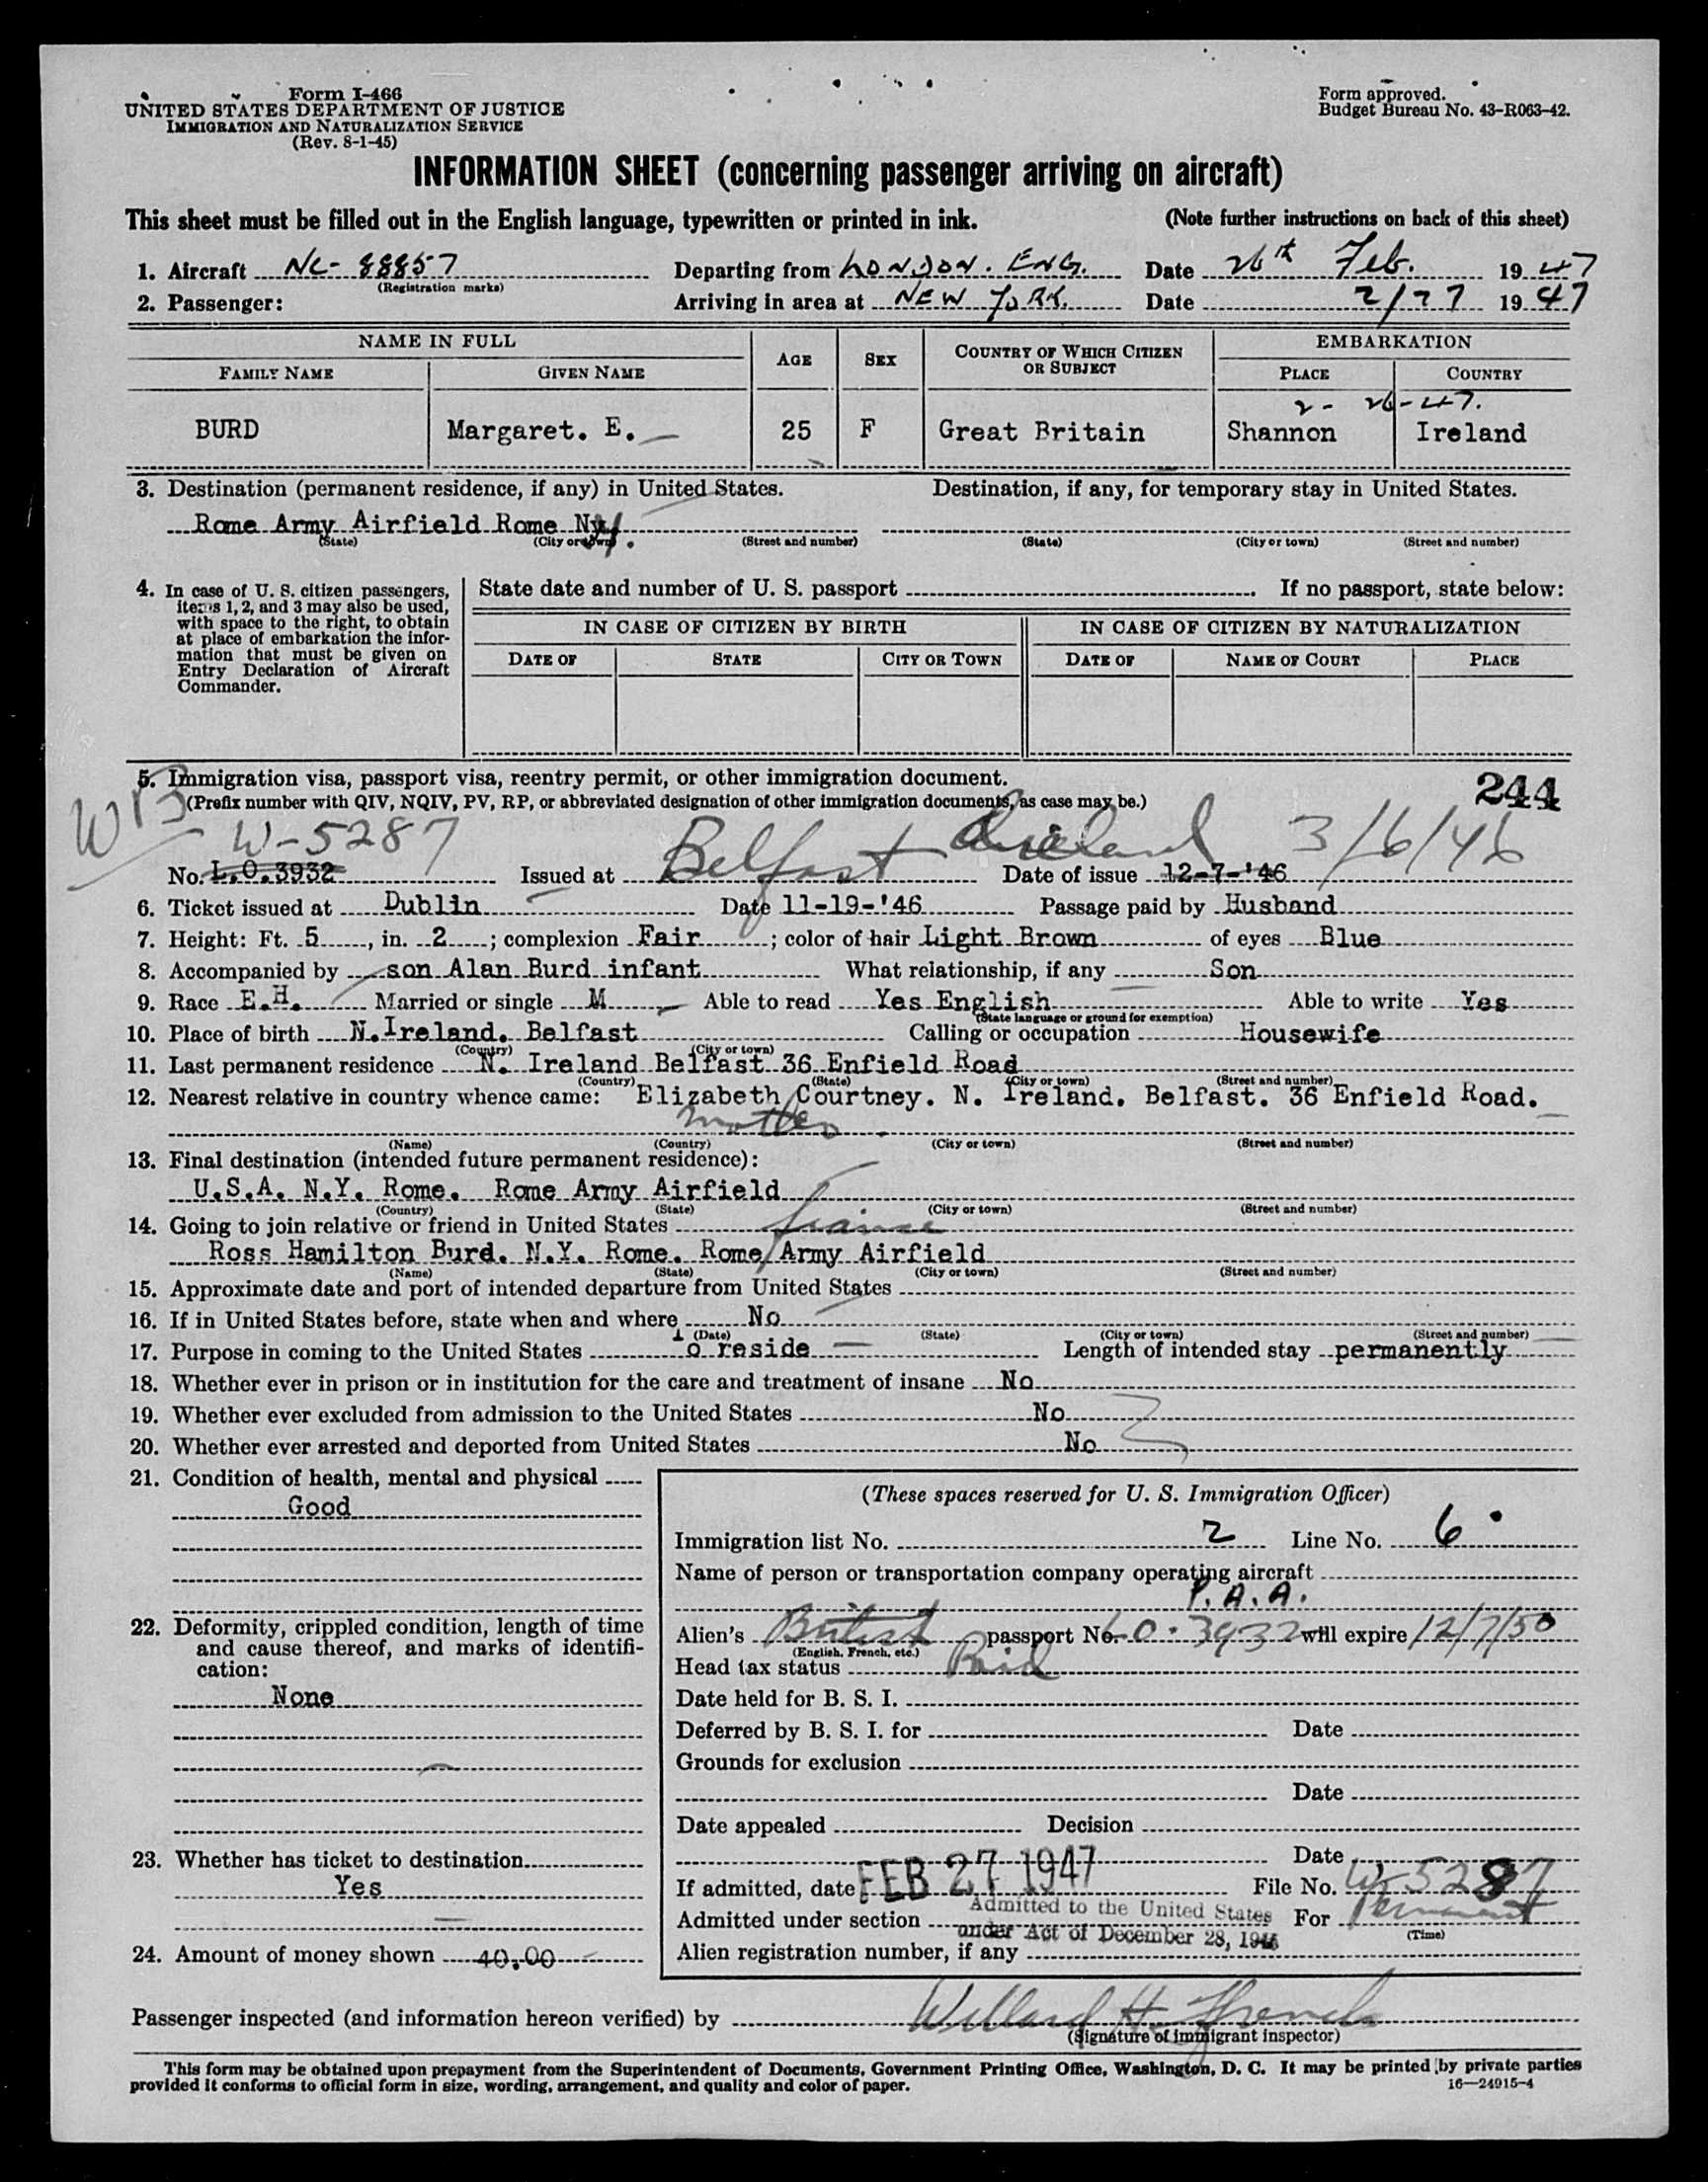 Form I-466
UNITED STATES DEPARTMENT OF JUSTICE
IMMIGRATION AND NATURALIZATION SERVICE
(Rev. 8-1-45)
Form approved.
Budget Bureau No. 43-R063-42.
INFORMATION SHEET (concerning passenger arriving on aircraft)
This sheet must be filled out in the English language, typewritten or printed in ink. (Note further instructions on back of this sheet)
1. Aircraft NC-88857 Departing from LONDON. ENG. Date 26th Feb. 1947
(Registration marks)
2. Passenger: Arriving in area at NEW YORK. Date 2/27 1947
NAME IN FULL AGE SEX COUNTRY OF WHICH CITIZEN OR SUBJECT EMBARKATION
FAMILY NAME GIVEN NAME PLACE COUNTRY
2- 26-47.
BURD Margaret. E. 25 F Great Britain Shannon Ireland
3. Destination (permanent residence, if any) in United States. Destination, if any, for temporary stay in United States.
Rome Army Airfield Rome Ny.
(State) (City or town) (Street and number) (State) (City or town) (Street and number)
4. In case of U. S. citizen passengers, items 1, 2, and 3 may also be used, with space to the right, to obtain at place of embarkation the information that must be given on Entry Declaration of Aircraft Commander.
State date and number of U. S. passport . If no passport, state below:
IN CASE OF CITIZEN BY BIRTH IN CASE OF CITIZEN BY NATURALIZATION
DATE OF STATE CITY OR TOWN DATE OF NAME OF COURT PLACE
5. Immigration visa, passport visa, reentry permit, or other immigration document. 244
(Prefix number with QIV, NQIV, PV, RP, or abbreviated designation of other immigration documents, as case may be.)
WB W-5287 Belfast Ireland 3/6/46
No. L.O.3932 Issued at Date of issue 12-7-'46
6. Ticket issued at Dublin Date 11-19-'46 Passage paid by Husband
7. Height: Ft. 5, in. 2; complexion Fair; color of hair Light Brown of eyes Blue
8. Accompanied by son Alan Burd infant What relationship, if any Son
9. Race E.H. Married or single M Able to read Yes English Able to write Yes
(State language or ground for exemption)
10. Place of birth N.Ireland. Belfast Calling or occupation Housewife
(Country) (City or town)
11. Last permanent residence N. Ireland Belfast 36 Enfield Road
(Country) (State) (City or town) (Street and number)
12. Nearest relative in country whence came: Elizabeth Courtney. N. Ireland. Belfast. 36 Enfield Road.
mother
(Name) (Country) (City or town) (Street and number)
13. Final destination (intended future permanent residence):
U.S.A. N.Y. Rome. Rome Army Airfield
(Country) (State) (City or town) (Street and number)
14. Going to join relative or friend in United States fiance
Ross Hamilton Burd. N.Y. Rome. Rome Army Airfield
(Name) (State) (City or town) (Street and number)
15. Approximate date and port of intended departure from United States
16. If in United States before, state when and where No
(Date) (State) (City or town) (Street and number)
17. Purpose in coming to the United States To reside Length of intended stay permanently
18. Whether ever in prison or in institution for the care and treatment of insane No
19. Whether ever excluded from admission to the United States No
20. Whether ever arrested and deported from United States No
21. Condition of health, mental and physical
Good
22. Deformity, crippled condition, length of time and cause thereof, and marks of identification:
None
23. Whether has ticket to destination
Yes
24. Amount of money shown 40.00
(These spaces reserved for U. S. Immigration Officer)
Immigration list No. 2 Line No. 6
Name of person or transportation company operating aircraft
P.A.A.
Alien's British passport No. LO.3932 will expire 12/7/50
(English, French, etc.)
Head tax status Paid
Date held for B. S. I.
Deferred by B. S. I. for Date
Grounds for exclusion
Date
Date appealed Decision
Date
If admitted, date FEB 27 1947 File No. W-5287
Admitted under section Admitted to the United States under Act of December 28, 1945 For Permanent
(Time)
Alien registration number, if any
Passenger inspected (and information hereon verified) by Willard H. French
(Signature of immigrant inspector)
This form may be obtained upon prepayment from the Superintendent of Documents, Government Printing Office, Washington, D. C. It may be printed by private parties
provided it conforms to official form in size, wording, arrangement, and quality and color of paper. 16—24915-4